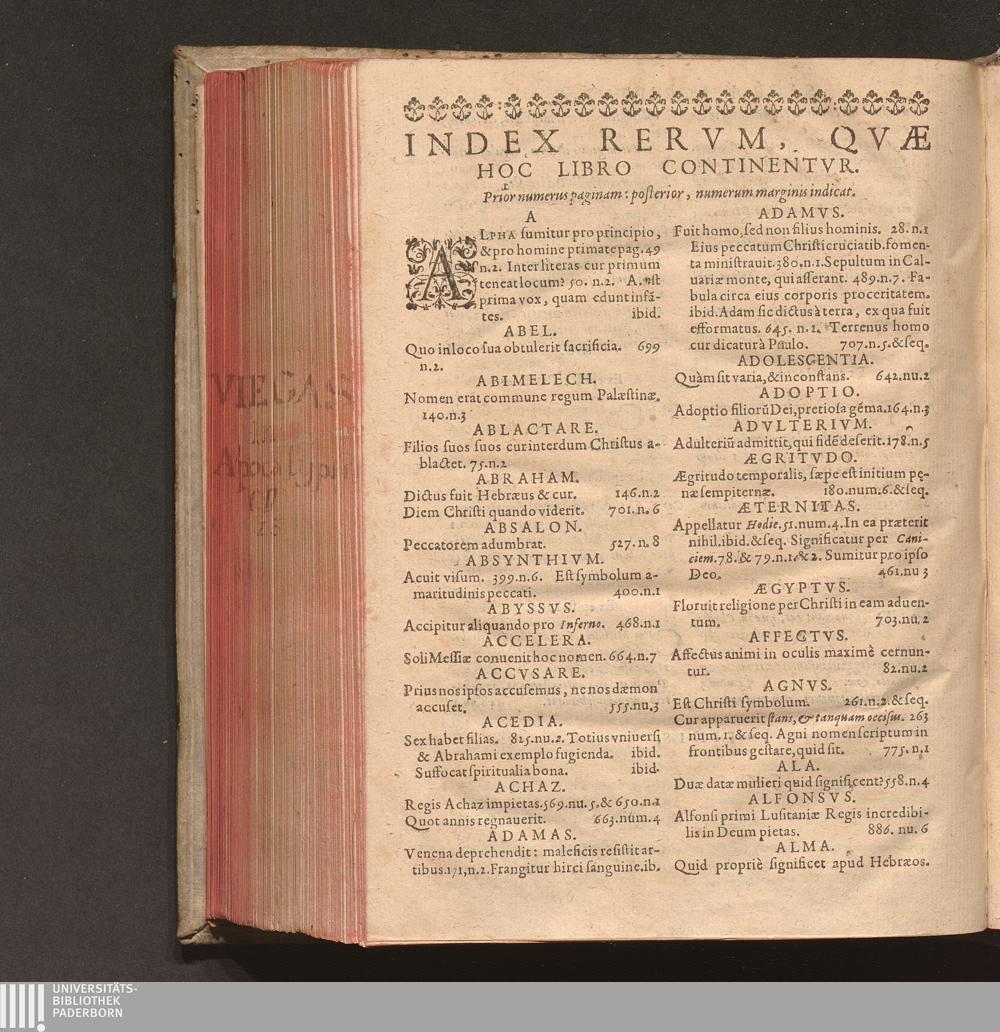 INDEX RERVM, QVÆ
HOC LIBRO CONTINENTVR.
Prior numerus paginam: posterior, numerum marginis indicat.
A
ALPHA sumitur pro principio,
& pro homine primate pag. 49
n.2. Inter literas cur primum
teneat locum? 50. n.2. A. est
prima vox, quam edunt infã-
tes. ibid.
ABEL.
Quo in loco sua obtulerit sacrificia. 699
n.2.
ABIMELECH.
Nomen erat commune regum Palæstinæ.
140.n.3
ABLACTARE.
Filios suos suos cur interdum Christus a-
blactet. 75.n.2
ABRAHAM.
Dictus fuit Hebræus & cur. 146.n.2
Diem Christi quando viderit. 701.n.6
ABSALON.
Peccatorem adumbrat. 527.n.8
ABSYNTHIVM.
Acuit visum. 399.n.6. Est symbolum a-
maritudinis peccati. 400.n.1
ABYSSVS.
Accipitur aliquando pro Inferno. 468.n.1
ACCELERA.
Soli Messiæ conuenit hoc nomen. 664.n.7
ACCVSARE.
Prius nos ipsos accusemus, ne nos dæmon
accuset. 555.nu.3
ACEDIA.
Sex habet filias. 825.nu.2. Totius vniuersi
& Abrahami exemplo fugienda. ibid.
Suffocat spiritualia bona. ibid.
ACHAZ.
Regis Achaz impietas. 569.nu.5.& 650.n.1
Quot annis regnauerit. 663.num.4
ADAMAS.
Venena deprehendit: maleficis resistit ar-
tibus.171,n.2. Frangitur hirci sanguine.ib.
ADAMVS.
Fuit homo, sed non filius hominis. 28.n.1
Eius peccatum Christi cruciatib. fomen-
ta ministrauit.380.n.1. Sepultum in Cal-
uariæ monte, qui asserant. 489.n.7. Fa-
bula circa eius corporis proceritatem.
ibid. Adam sic dictus à terra, ex qua fuit
efformatus. 645. n.1. Terrenus homo
cur dicatur à Paulo. 707.n.5.& seq.
ADOLESCENTIA.
Quàm sit varia, & inconstans. 642.nu.2
ADOPTIO.
Adoptio filiorũ Dei, pretiosa gẽma.164.n.3
ADVLTERIVM.
Adulteriũ admittit, qui fidẽ deserit.178.n.5
ÆGRITVDO.
Ægritudo temporalis, sæpe est initium pę-
næ sempiternæ. 180.num.6.& seq.
ÆTERNITAS.
Appellatur Hodie. 51.num.4. In ea præterit
nihil.ibid.& seq. Significatur per Cani-
ciem.78.& 79.n.1.& 2. Sumitur pro ipso
Deo. 461.nu 3
ÆGYPTVS.
Floruit religione per Christi in eam aduen-
tum. 703.nu.2
AFFECTVS.
Affectus animi in oculis maximè cernun-
tur. 82.nu.2
AGNVS.
Est Christi symbolum. 261.n.2.& seq.
Cur apparuerit stans, & tanquam occisus. 263
num.1.& seq. Agni nomen scriptum in
frontibus gestare, quid sit. 775.n,1
ALA.
Duæ datæ mulieri quid significent?558.n.4
ALFONSVS.
Alfonsi primi Lusitaniæ Regis incredibi-
lis in Deum pietas. 886. nu.6
ALMA.
Quid propriè significet apud Hebræos.
VIEGAS
Apocalypin
UNIVERSITÄTS-
BIBLIOTHEK
PADERBORN